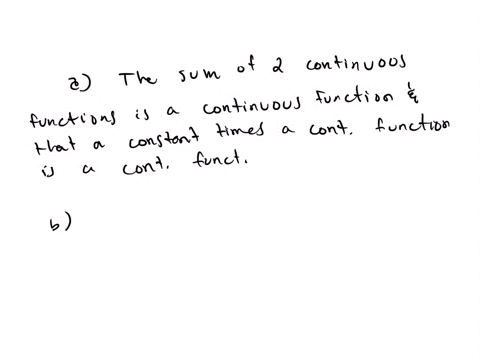 a) The sum of 2 continuous
functions is a continuous function &
that a constant times a cont. function
is a cont. funct.
b)